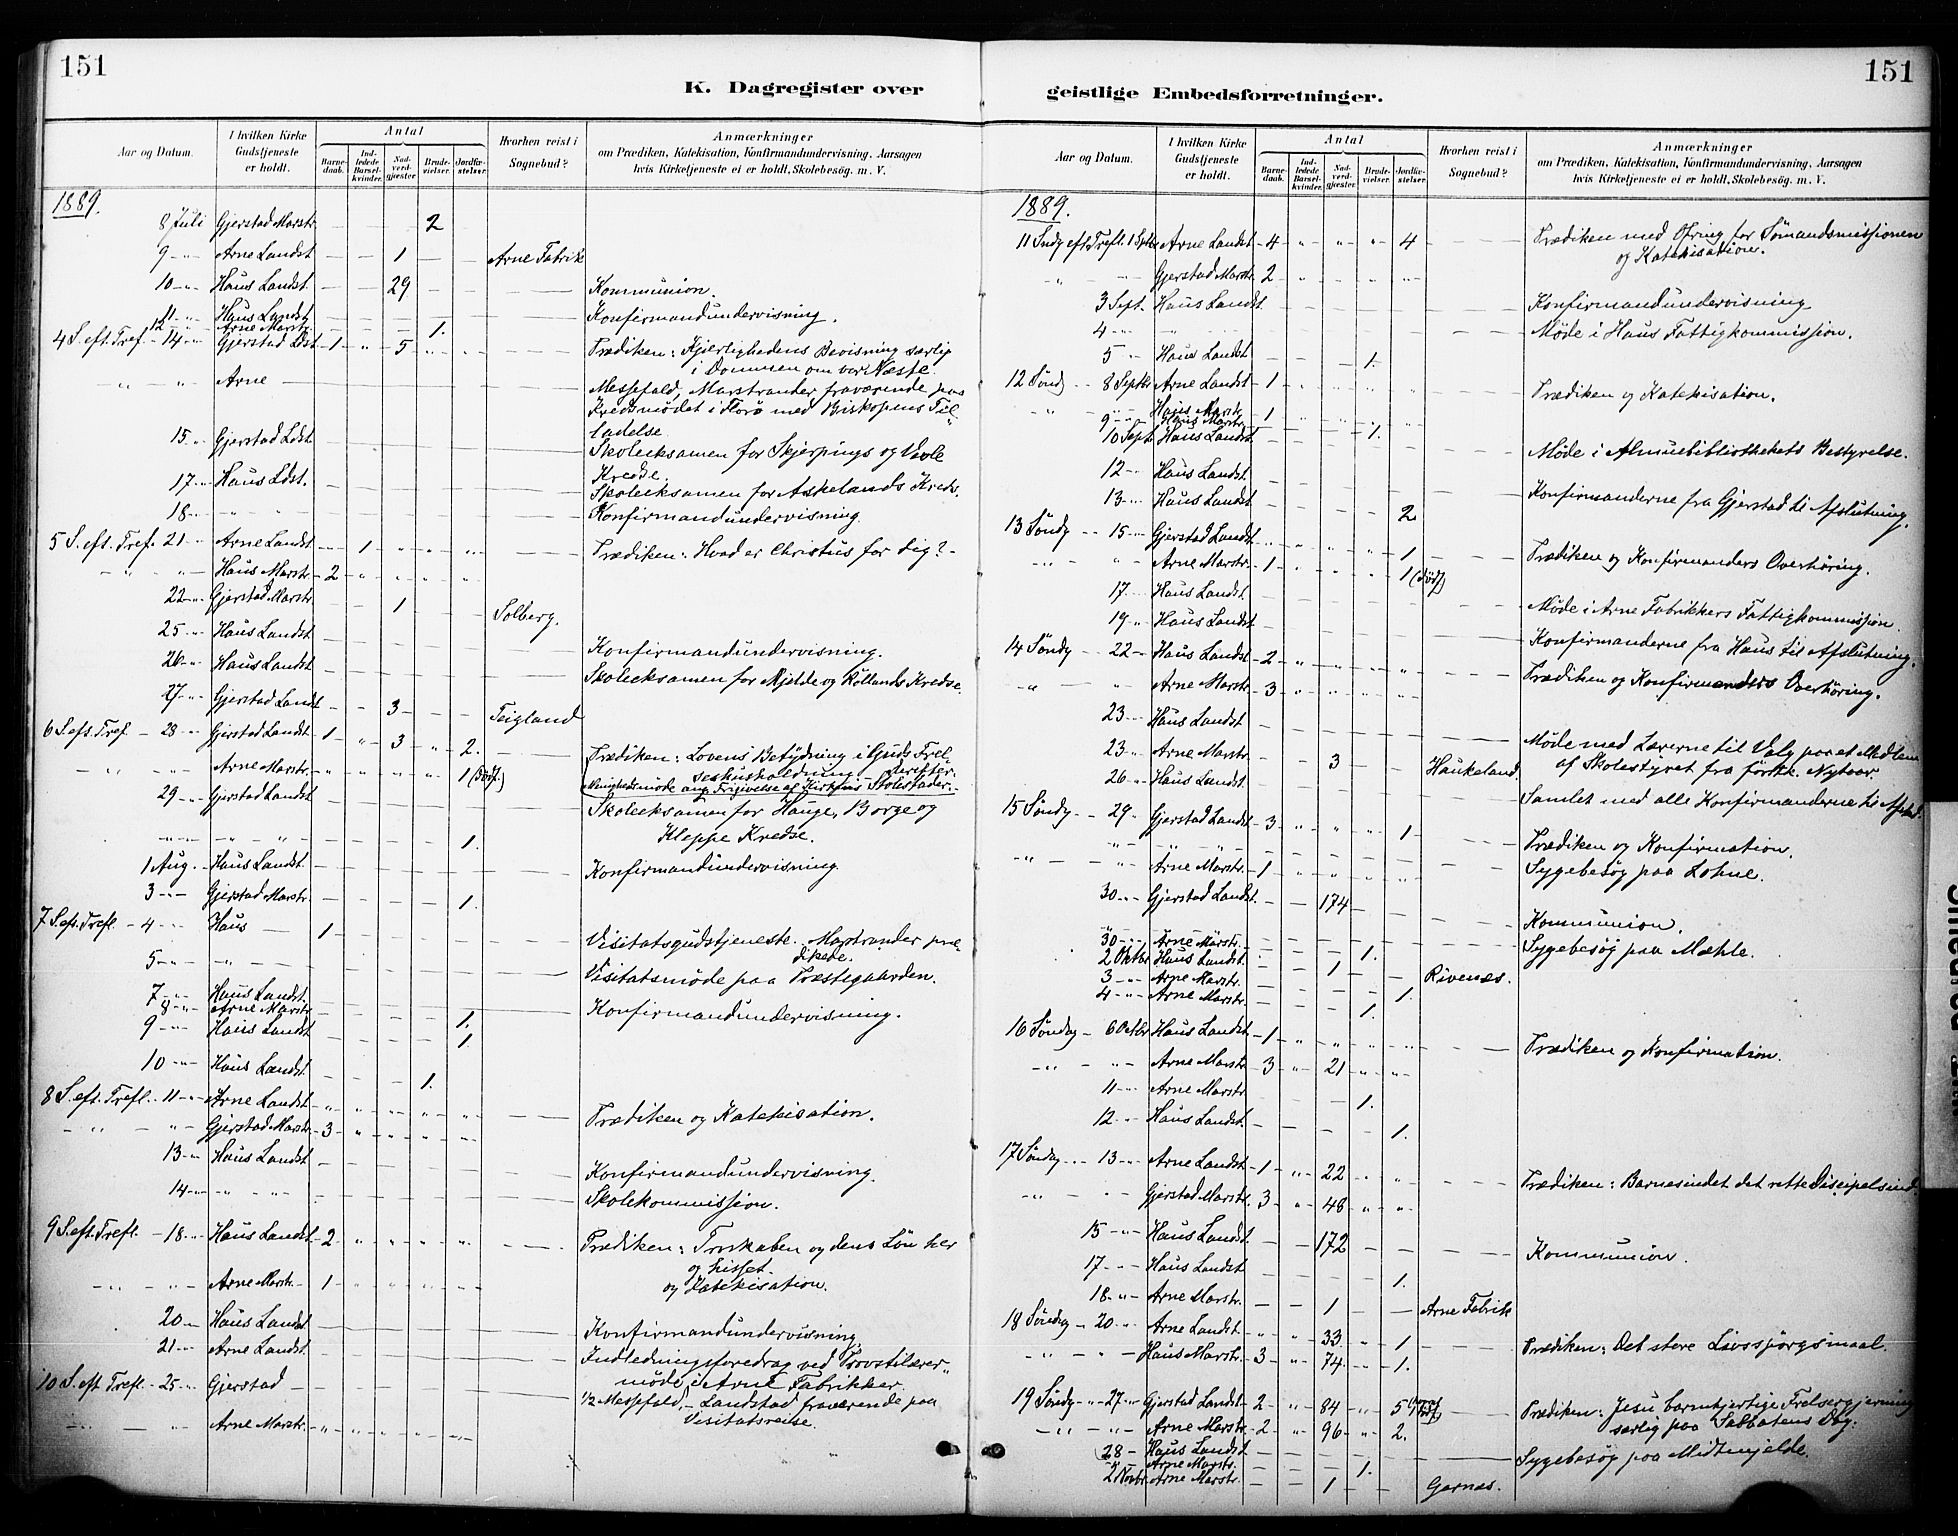 151
K. Dagregister over
Aar og Datum.
I hvilken Kirke Gudstjeneste er holdt.
Antal
Barne-daab.
Ind-ledede Barsel-kvinder.
Nad-verd-gjæster.
Brude-vielser.
Jordfæ-stelser.
Hvorhen reist i Sognebud?
Anmærkninger
om Prædiken, Katekisation, Konfirmandundervisning, Aarsagen
hvis Kirketjeneste ei er holdt, Skolebesøg. m. V.
1889.
8 Juli Gjerstad Marstr. 2
9 -"- Arne Landst. — — 1 — — Arne Fabrik
10 -"- Haus Landst. — — 29 — — — Kommunion.
11 -"- Haus Landst — Konfirmandundervisning.
12 -"- Arne Marstr. — — — 1.
4 S. eft. Tref. - 14 -"- Gjerstad Ldst. - 1 - " - 5 - " - " - Prædiken: Kjærlighedens Bevisning særlig
i Dommen om vor Næste.
" " Arne — Messefald, Marstrander fraværende paa
Kredsmødet i Florø med Biskopens Til-
ladelse
15 -"- Gjerstad Ldst. Skoleeksamen for Skjerpings og Vavle
Kredse.
17 -"- Haus Ldst. Skoleeksamen for Askelands Kreds.
18 -"- " " Konfirmandundervisning.
5 S. eft. Tref. 21 -"- Arne Landst — 1 - " - " - " Prædiken: Hvad er Christus for dig? -
" " Haus Marstr. - 2 - " - " - " - "
22 -"- Gjerstad Marstr. — — 1 — — Solberg.
25 -"- Haus Landst. — Konfirmandundervisning.
26 -"- Haus Landst — Skoleeksamen for Mjelde og Rollands Kredse.
27 -"- Gjerstad Landst — — 3 — — Teigland
6 S. eft. Tref. - 28 -"- Gjerstad Landst. - 1 - " - 3 - " - 2. — Prædiken: Lovens Betydning i Guds Frel-
seshusholdning — derefter
" " Arne Marstr. - " - " - " - " - 1 (dødf.) Menighedsmøde ang. Frigivelse af Kirkens Stolestader.
29 -"- Gjerstad Landst — Skoleeksamen for Hauge, Borge og
Kleppe Kredse.
" " " — — — — 1.
1 Aug. Haus Landst. — Konfirmandundervisning.
3 -"- Gjerstad Marstr. — — — — 1.
7 S. eft. Trefl. - 4 -"- Haus — 1 — Visitatsgudstjeneste. Marstrander præ-
dikede.
5 -"- " — Visitatsmøde paa Præstegaarden.
7 -"- Haus Landst. — Konfirmandundervisning.
8 -"- Arne Marstr. — — — — 1.
9 -"- Haus Landst — — — — 1.
10 -"- Haus Landst — — — 1.
8 S. eft. Trefl. - 11 -"- Arne Landst. - " - " - " - " - " — Prædiken og Katekisation.
" " Gjerstad Marstr. - 3 - " - " - " - "
13 -"- Haus Landst — Konfirmandundervisning.
14 -"- " " — Skolekommission.
9 S. eft. Trefl. - 18 -"- Haus Landst - 2 - " - " - " - " — Prædiken: Troskaben og dens Løn her
og hisset.
og Katekisation.
" " Arne Marstr. - 1 - " - " - " - "
20 -"- Haus Landst — Konfirmandundervisning
21 -"- Arne Landst. — Indledningsforedrag ved Provstilærer-
møde i Arne Fabrikker.
10 S. eft Trefl. - 25 -"- Gjerstad — 1/2 Messefald, - Landstad fraværende paa
Visitatsreise.
" " Arne Marstr. - " - " - " - " - "
151
geistlige Embedsforretninger.
Aar og Datum.
I hvilken Kirke Gudstjeneste er holdt.
Antal
Barne-daab.
Ind-ledede Barsel-kvinder.
Nad-verd-gjæster.
Brude-vielser.
Jordfæ-stelser.
Hvorhen reist i Sognebud?
Anmærkninger
om Prædiken, Katekisation, Konfirmandundervisning, Aarsagen
hvis Kirketjeneste ei er holdt, Skolebesøg. m. V.
1889.
11 Sndg eft. Trefl. 1 Septbr Arne Landst - 4 - " - " - " - 4 — Prædiken med Ofring for Sømandsmissionen
og Katekisation.
" " Gjerstad Marstr. 2 - " - " - " - "
3 Sept. Haus Landst. — Konfirmandundervisning
4 -"- " — Møde i Haus Fattigkommission.
5 -"- Haus Landst — — — 1.
12 Søndg - 8 Septbr Arne Landst - 1 - " - " - " - " — Prædiken og Katekisation.
" " Haus Marstr. - 1 - " - " - " - "
9 -"- Haus Marstr. — — — 1.
10 Sept. Haus Landst. — Møde i Almuebibliothekets Bestyrelse.
12 -"- Haus Landst. —
13 -"- Haus Landst — — — — 2 Konfirmanderne fra Gjerstad til Afslutning.
13 Søndg - 15 -"- Gjerstad Landst - " - " - " - " - 1 — Prædiken og Konfirmanders Overhøring.
" " Arne Marstr. - 1 - " - " - " - 1 (dødf.)
17 -"- Haus Landst. — Møde i Arne Fabrikkers Fattigkommission
19 -"- Haus Landst — Konfirmanderne fra Haus til Afslutning.
14 Søndg - 22 -"- Haus Landst - 2 - " - " - " - " — Prædiken og Konfirmanders Overhøring.
" " Arne Marstr. - 3 - " - " - " - "
23 -"- Haus Landst. — Møde med Lærerne til Valg paa et Medlem
af Skolestyret fra førstk. Nytaar.
23 -"- Arne Marstr. — — 3 — — Haukeland.
26 -"- Haus Landst. — Samlet med alle Konfirmanderne til Afslutn.
15 Søndg - 29 -"- Gjerstad Landst - 3 - " - " - " - 1 — Prædiken og Konfirmation.
" " Arne Marstr. - 1 - " - " - " - " Sygebesøg paa Lohne.
30 -"- Gjerstad Landst — — 174 — — — Kommunion.
30 -"- Arne Marstr. — — — 1. Sygebesøg paa Mæhle.
2 Oktbr Haus Landst. — — 1 — — Rivenæs.
3 -"- Arne Marstr. — — — — 1.
4 -"- Arne Marstr. — — — 1.
16 Søndag - 6 Octbr Haus Landst. - 1 - " - " - " - " — Prædiken og Konfirmation.
" " Arne Marstr - 3 - " - 21 - " - "
11 -"- Arne Marstr. — — — 1.
12 -"- Haus Landst. — — — — 1.
17 Søndag - 13 -"- Arne Landst. - 1 - " - 22 - " - " — Prædiken: Barnesindet det rette Discipelsind.
" " Gjerstad Marstr. - 3 - " - 48 - " - "
15 -"- Haus Landst. — — 172 — — — Kommunion.
17 -"- Haus Landst — — — — 1.
18 -"- Arne Marstr. — — 1 — — Arne Fabrik
18 Søndag - 20 -"- Arne Landst. - " - " - 33. - " - 1 — Prædiken: Det store Livsspørgsmaal.
" " Haus Marstr. - 3 - " - 74. - " - 1.
19 Søndg - 27 -"- Gjerstad Landst - 2 - " - 84 - " - 5 — Prædiken: Jesu barmhjertige Frelsergjerning
særlig paa Sabbatens Dag.
" " Arne Marstr. - 2 - " - 96 - " - 2.
28 - Haus Landst — Sygebesøg paa Midtmjelde.
" Arne Marstr. — — — 1.
2 Novbr. Arne Marstr. — — 1 — — Garnæs.